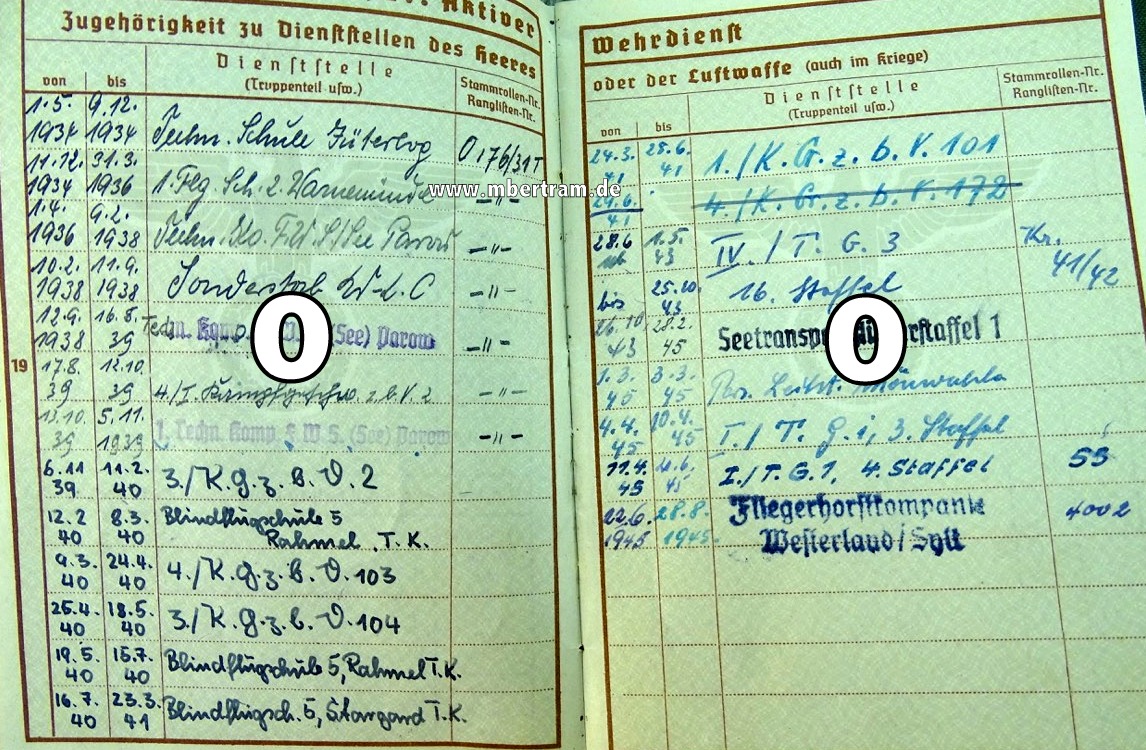 Aktiver
Zugehörigkeit zu Dienststellen des Heeres
von bis
Dienststelle
(Truppenteil usw.)
Stammrollen-Nr.
Ranglisten-Nr.
1.5. 9.12.
1934 1934
Techn. Schule Jüterbog
O 176/31 T
11.12. 31.3.
1934 1936
1. Flg. Sch. 2. Warnemünde
– " –
1.4. 9.2.
1936 1938
Techn. (See) Parow
– " –
10.2. 11.9.
1938 1938
Sonderstab W-L. C
– " –
12.9. 16.8.
1938 39
Techn. Komp. (See) Parow
– " –
19
17.8. 12.10.
39 39
4./I. z.b.V. 2
– " –
13.10. 5.11.
39 1939
1. Techn. Komp. F.W.S. (See) Parow
– " –
6.11 11.2.
39 40
3./K.G.z.B.V. 2
12.2 8.3.
40 40
Blindflugschule 5
Rahmel, T.K.
9.3. 24.4.
40 40
4./K.G.z.B.V. 103
25.4. 18.5.
40 40
3./K.G.z.b.V. 104
19.5. 15.7.
40 40
Blindflugschule 5, Rahmel T.K.
16.7. 23.3.
40 41
Blindflugsch. 5, Stargard T.K.
O
www.mbertram.de
Wehrdienst
oder der Luftwaffe (auch im Kriege)
von bis
Dienststelle
(Truppenteil usw.)
Stammrollen-Nr.
Ranglisten-Nr.
24.3. 28.6.
41 41
1./K.G.z.b.V. 101
29.6.
41
4./K.G.z.b.V. 172
28.6 1.5.
43
IV./T.G. 3
Kr.
41/42
bis 25.10.
43
16. Staffel
26.10 28.2.
43 45
Seetransportfliegerstaffel 1
1.3. 3.3.
45 45
4.4. 10.4.
45 45
I./T.G. 1, 3. Staffel
11.4. 4.6.
45 45
I./T.G.1, 4. Staffel
53
22.6. 28.8.
1945 1945
Fliegerhorstkompanie
Westerland/Sylt
4002
O